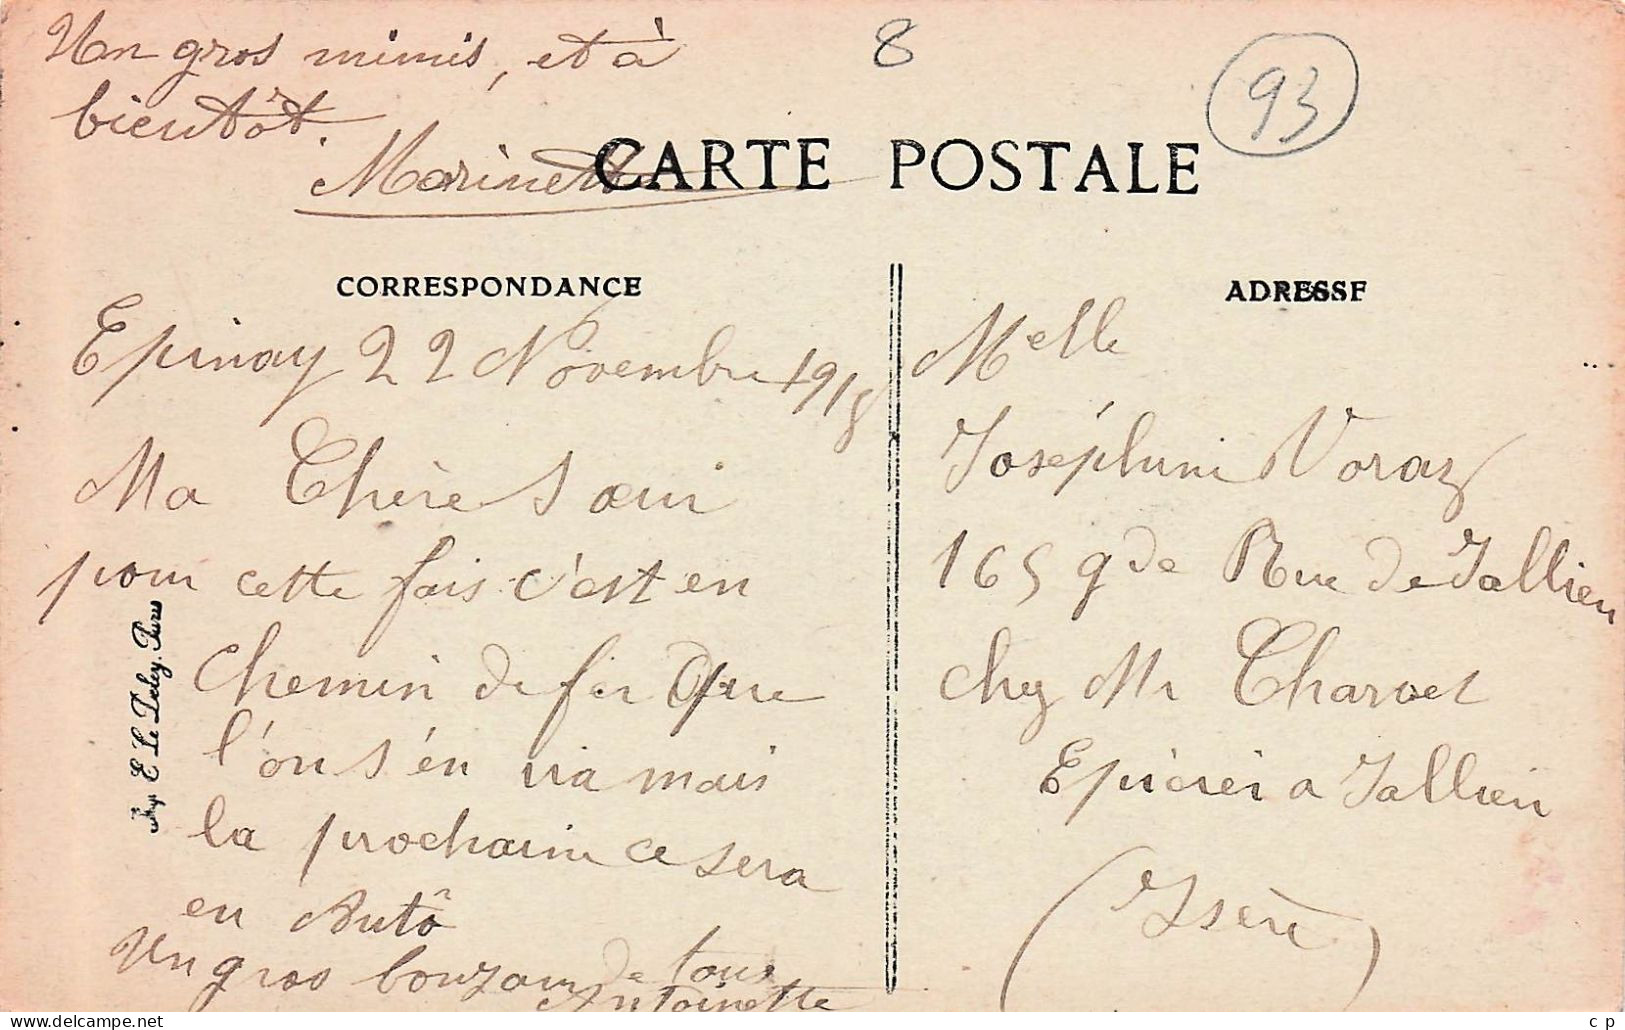 Un gros mimis, et à
bientôt.
Marinette
8
93
CARTE POSTALE
CORRESPONDANCE
ADRESSE
Epinay 22 Novembre 1918
Ma Chère Sœur
pour cette fois c'est en
Chemin de fer Que
l'on s'en va mais
la prochaine ce sera
en Autô
Un gros de tous
Antoinette
Imp. E. Le Deley, Paris
Melle
Joséphine Voraz
165 gde Rue de Jallieu
chez Mr Charvet
Epicier a Jallieu
(Isère)
delcampe.net
c p